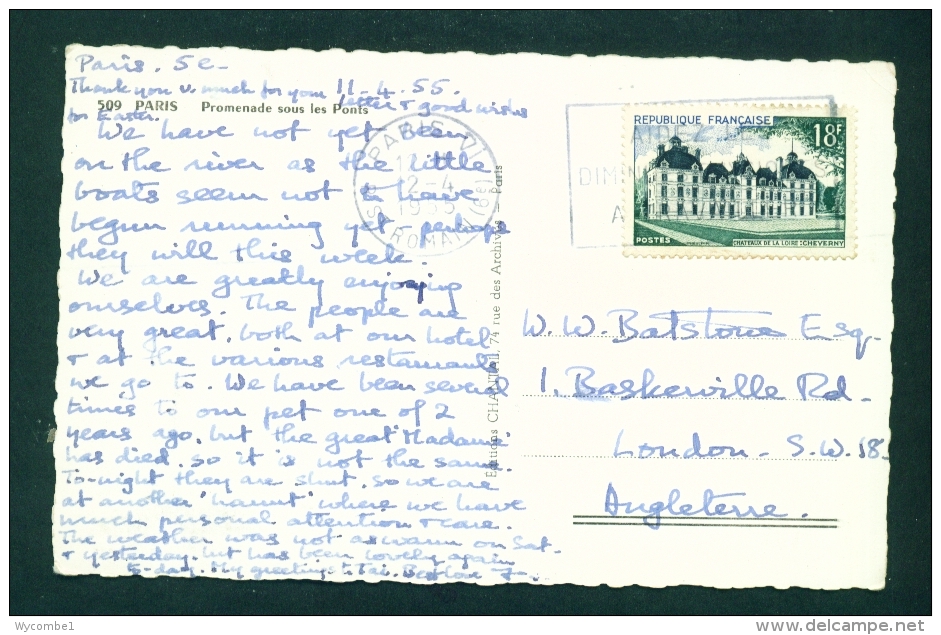 Paris. 5e-
11-4.55.
Thank you v. much for your letter & good wishes
for Easter.
509 PARIS Promenade sous les Ponts
We have not yet been
on the river as the little
boats seem not to have
begun running yet - perhaps
they will this week.
We are greatly enjoying
ourselves. The people are
very great, both at our hotel
& at the various restaurants
we go to. We have been several
times to our pet one of 2
years ago, but the great 'Madame'
has died, so it is not the same.
To-night they are shut, so we are
at another 'haunt' where we have
much personal attention & care.
The weather was not as warm on Sat-
& yesterday, but has been lovely again
to-day. My greetings to Best love
PARIS
12-4
1955
R. ROMAIN (6e)
Editions 74 rue des Archives - Paris
REPUBLIQUE FRANÇAISE
18F
POSTES
CHATEAUX DE LA LOIRE: CHEVERNY
W. W. Batstone Esq.
1, Baskerville Rd.
London. S.W. 18.
Angleterre.
Wycombe1
delcampe.net